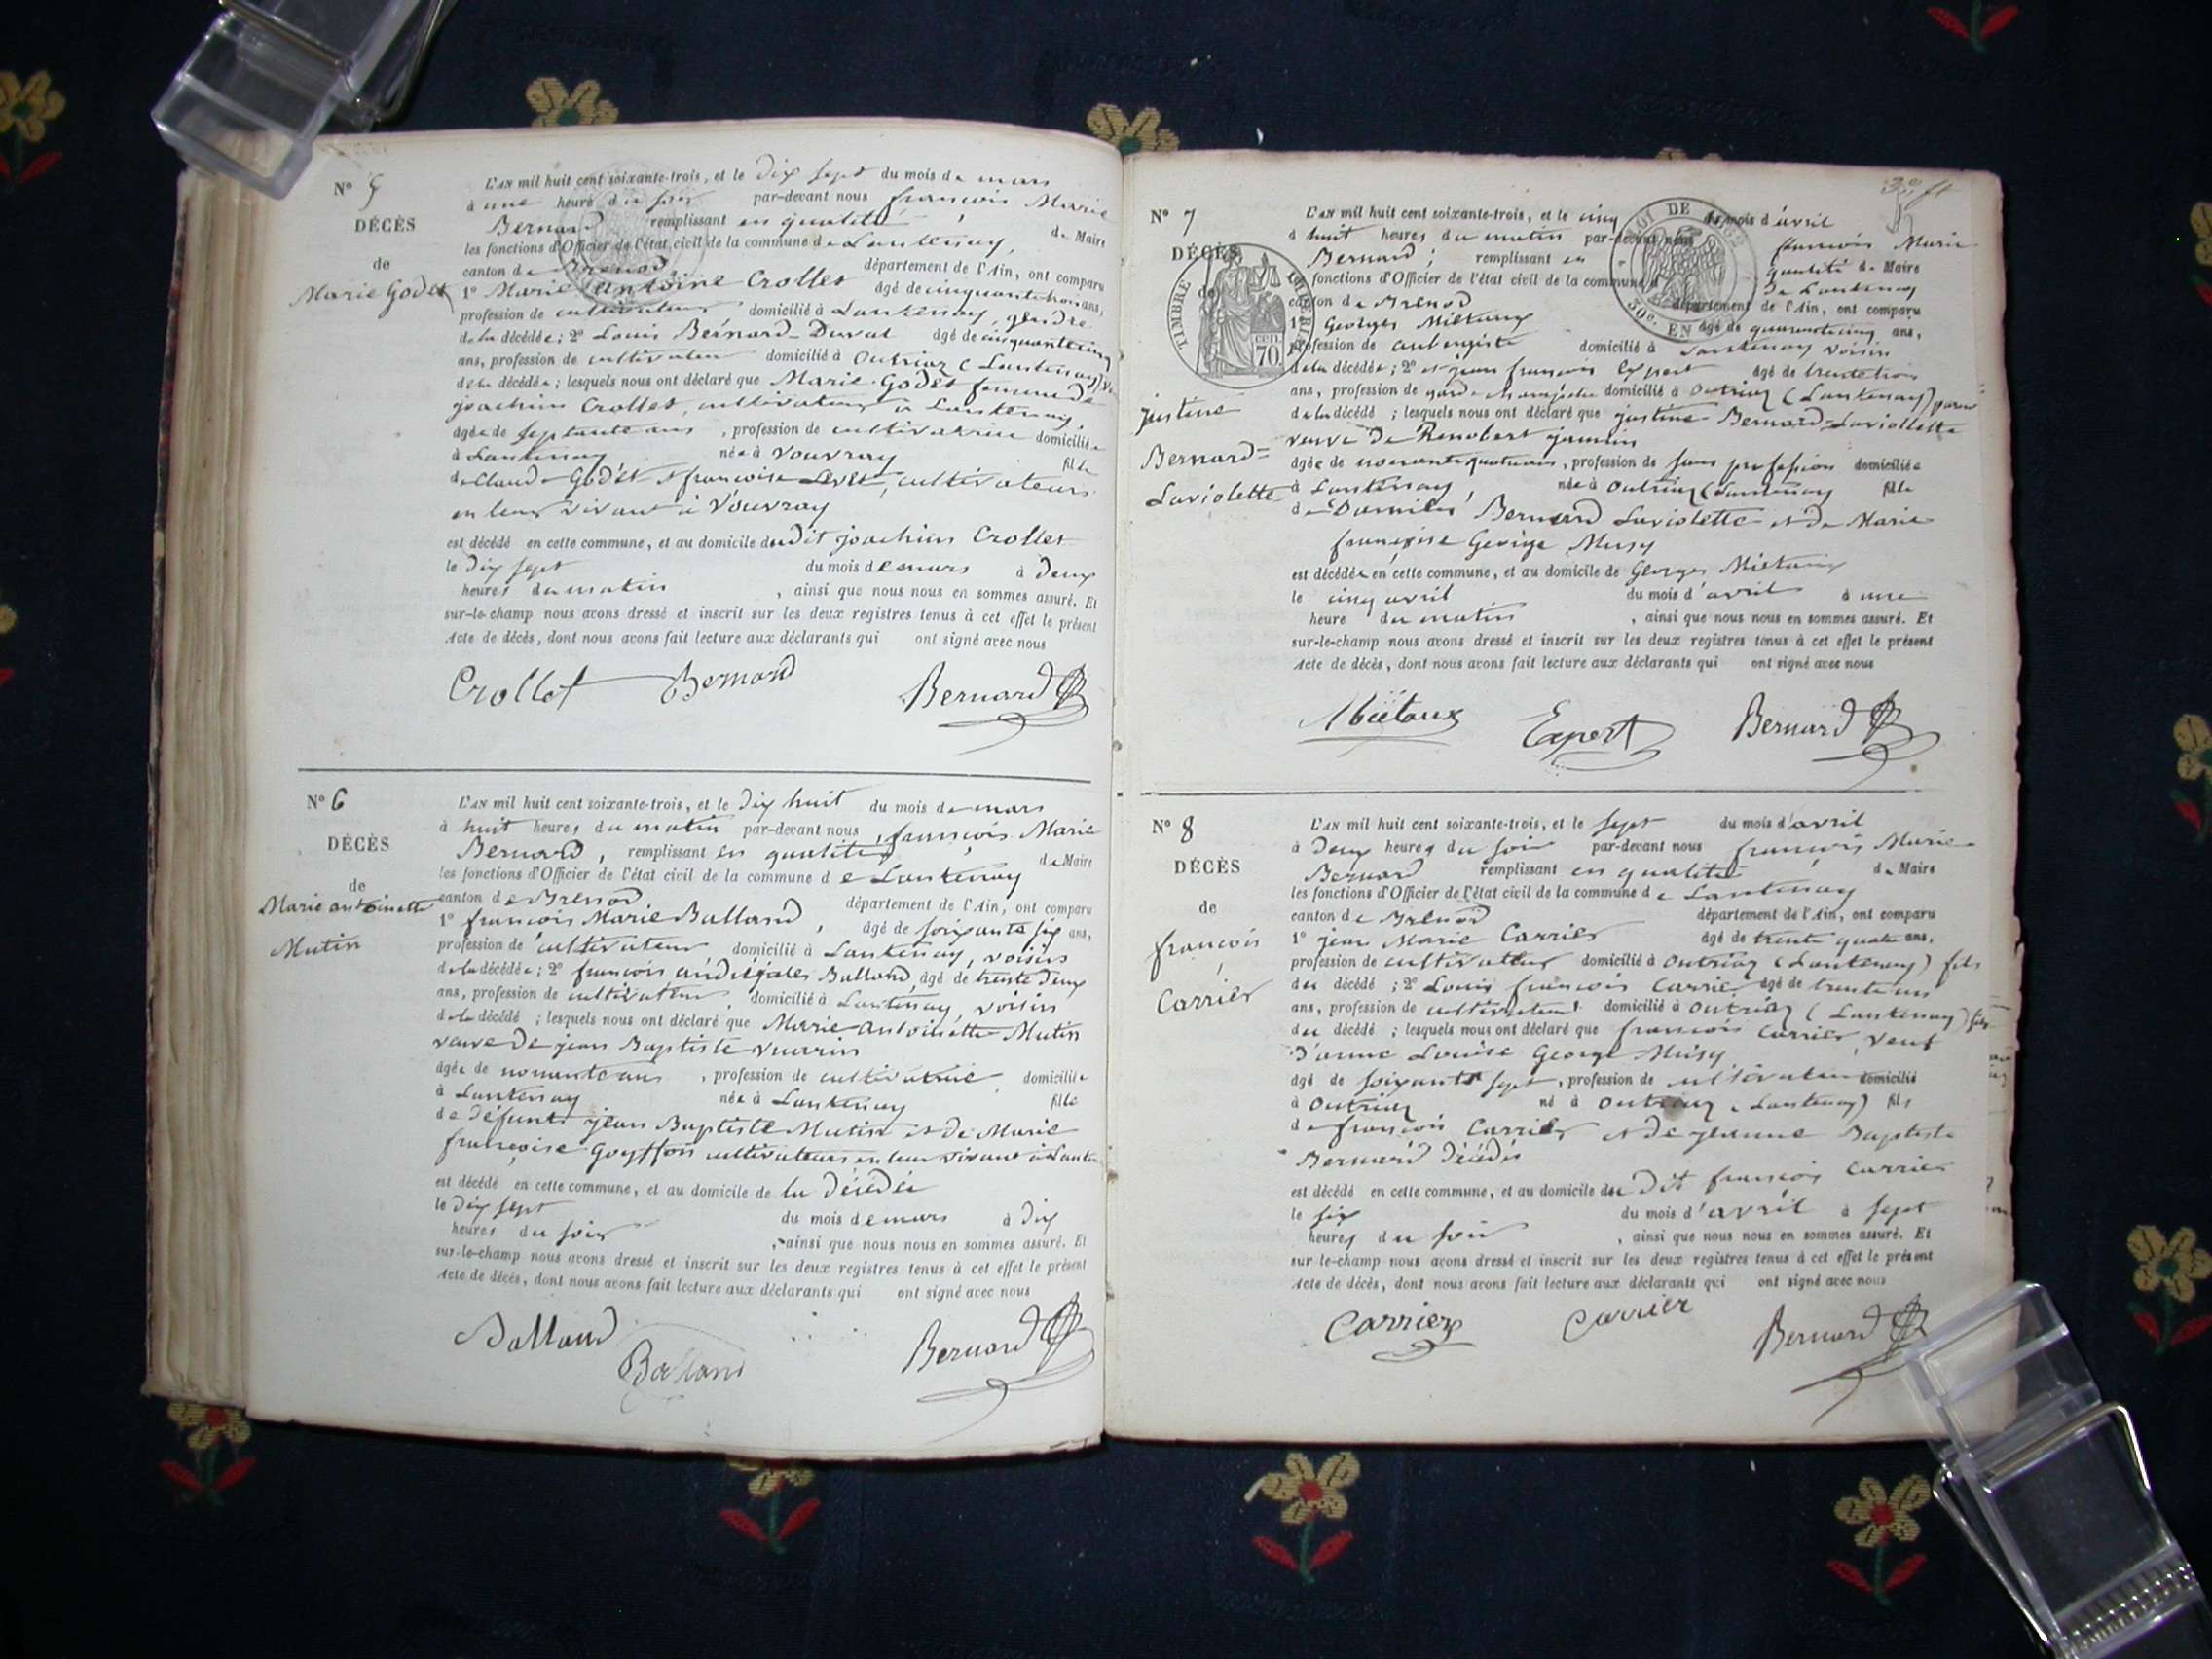 N° 5
DÉCÈS
de
Marie Godet
L'AN mil huit cent soixante-trois, et le dix sept du mois de mars
à une heure du soir par-devant nous françois Marie
Bernard remplissant en qualité de Maire
les fonctions d'Officier de l'état civil de la commune de Lantenay,
canton de Brenod, département de l'Ain, ont comparu
1° Marie antoine Crollet âgé de cinquante trois ans,
profession de cultivateur domicilié à Lantenay, gendre
de la décédée; 2° Louis Bernard-Duval âgé de cinquante cinq
ans, profession de cultivateur domicilié à Outriaz (Lantenay)
de la décédée; lesquels nous ont déclaré que Marie Godet femme de
joachim Crollet, cultivateur à Lantenay
âgée de septante ans, profession de cultivatrice domiciliée
à Lantenay née à Vouvray fille
de Claude Godet et françoise Levet, cultivateurs
en leur vivant à Vouvray
est décédé en cette commune, et au domicile du dit joachim Crollet
le dix sept du mois de mars à deux
heures du matin, ainsi que nous nous en sommes assuré. Et
sur-le-champ nous avons dressé et inscrit sur les deux registres tenus à cet effet le présent
Acte de décès, dont nous avons fait lecture aux déclarants qui ont signé avec nous
Crollet Bernard Bernard
N° 6
DÉCÈS
de
Marie antoinette
Mutin
L'AN mil huit cent soixante-trois, et le dix huit du mois de mars
à huit heures du matin par-devant nous, françois Marie
Bernard, remplissant en qualité de Maire
les fonctions d'Officier de l'état civil de la commune de Lantenay
canton de Brenod département de l'Ain, ont comparu
1° françois Marie Balland, âgé de soixante six ans,
profession de cultivateur domicilié à Lantenay, voisin
de la décédée; 2° françois Balland, âgé de trente deux
ans, profession de cultivateur domicilié à Lantenay, voisin
de la décédé; lesquels nous ont déclaré que Marie antoinette Mutin
veuve de jean Baptiste Vuarin
âgée de nonante ans, profession de cultivatrice domiciliée
à Lantenay née à Lantenay fille
de défunts jean Baptiste Mutin et de Marie
françoise Goyffon cultivateurs en leur vivant à Lantenay
est décédé en cette commune, et au domicile de la décédée
le dix sept du mois de mars à dix
heures du soir, ainsi que nous nous en sommes assuré. Et
sur-le-champ nous avons dressé et inscrit sur les deux registres tenus à cet effet le présent
Acte de décès, dont nous avons fait lecture aux déclarants qui ont signé avec nous
Balland Balland Bernard
N° 7
DÉCÈS
de
justine
Bernard=
Laviolette
TIMBRE IMPÉRIAL
CEN. 70
L'AN mil huit cent soixante-trois, et le cinq du mois d'avril
à huit heures du matin par-devant nous françois Marie
Bernard; remplissant en qualité de Maire
fonctions d'Officier de l'état civil de la commune de Lantenay
canton de Brenod département de l'Ain, ont comparu
1° Georges Miétaux âgé de quarante cinq ans,
profession de aubergiste domicilié à Lantenay voisin
de la décédée; 2° et jean françois Expert âgé de trente trois
ans, profession de garde domicilié à Outriaz (Lantenay) parent
de la décédé; lesquels nous ont déclaré que justine Bernard-Laviollette
veuve de Renobert
âgée de nonante quatre ans, profession de sans profession domiciliée
à Lantenay, née à Outriaz (Lantenay fille
de Bernard Laviolette et de Marie
françoise George Musy
est décédée en cette commune, et au domicile de Georges Miétaux
le cinq avril du mois d'avril à une
heure du matin, ainsi que nous nous en sommes assuré. Et
sur-le-champ nous avons dressé et inscrit sur les deux registres tenus à cet effet le présent
Acte de décès, dont nous avons fait lecture aux déclarants qui ont signé avec nous
Miétaux Expert Bernard
N° 8
DÉCÈS
de
françois
Carrier
L'AN mil huit cent soixante-trois, et le sept du mois d'avril
à deux heures du soir par-devant nous françois Marie
Bernard remplissant en qualité de Maire
les fonctions d'Officier de l'état civil de la commune de Lantenay
canton de Brenod département de l'Ain, ont comparu
1° jean Marie Carrier âgé de trente quatre ans,
profession de cultivateur domicilié à Outriaz (Lantenay) fils
du décédé; 2° Louis françois Carrier âgé de trente un
ans, profession de cultivateur domicilié à Outriaz (Lantenay) fils
du décédé; lesquels nous ont déclaré que françois Carrier, veuf
d'anne Louise George Musy
âgé de soixante sept, profession de cultivateur domicilié
à Outriaz né à Outriaz (Lantenay) fils
de françois Carrier et de jeanne Baptiste
Bernard décédés
est décédé en cette commune, et au domicile du dit françois Carrier
le six du mois d'avril à sept
heures du soir, ainsi que nous nous en sommes assuré. Et
sur-le-champ nous avons dressé et inscrit sur les deux registres tenus à cet effet le présent
Acte de décès, dont nous avons fait lecture aux déclarants qui ont signé avec nous
Carrier Carrier Bernard